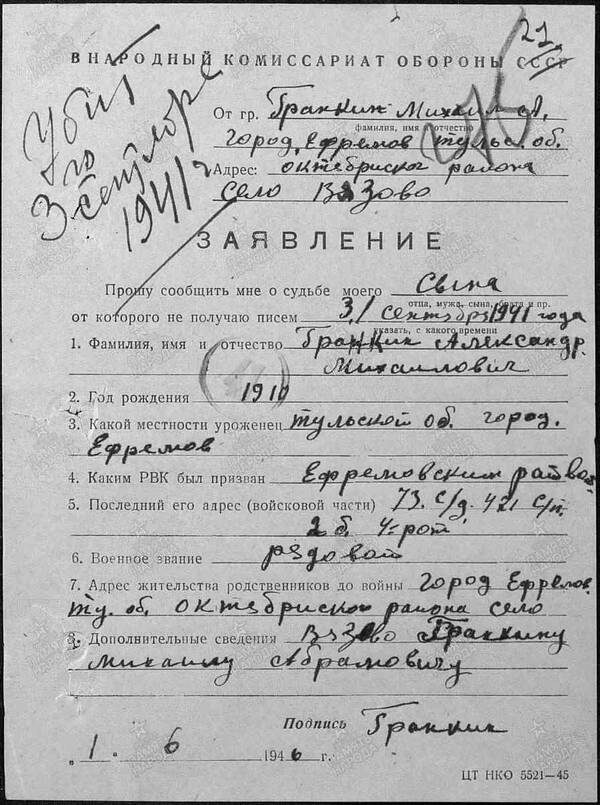 21
В НАРОДНЫЙ КОМИССАРИАТ ОБОРОНЫ СССР
Убит
3 сентября
1941 г
От гр. Гранкин Михаил А.
фамилия, имя и отчество
город Ефремов Тульс. об.
Адрес: октебриског района
село Вязово
ЗАЯВЛЕНИЕ
Прошу сообщить мне о судьбе моего Сына
отца, мужа, сына, брата и пр.
от которого не получаю писем 3/ сентебря 1941 года
указать, с какого времени
1. Фамилия, имя и отчество Гранкин Александр.
Михаилович
2. Год рождения 1910
3. Какой местности уроженец тульской об. город.
Ефремов
4. Каким РВК был призван Ефремовским
5. Последний его адрес (войсковой части) 73. с/д. 421 с/п.
2 б. 4 рот
6. Военное звание редовой
7. Адрес жительства родственников до войны город Ефремов
ту. об. октебриског района село
8. Дополнительные сведения Вязово Гранкину
михаилу Абрамовичу
Подпись Гранкин
"1" 6 1946 г.
ЦТ НКО 5521—45